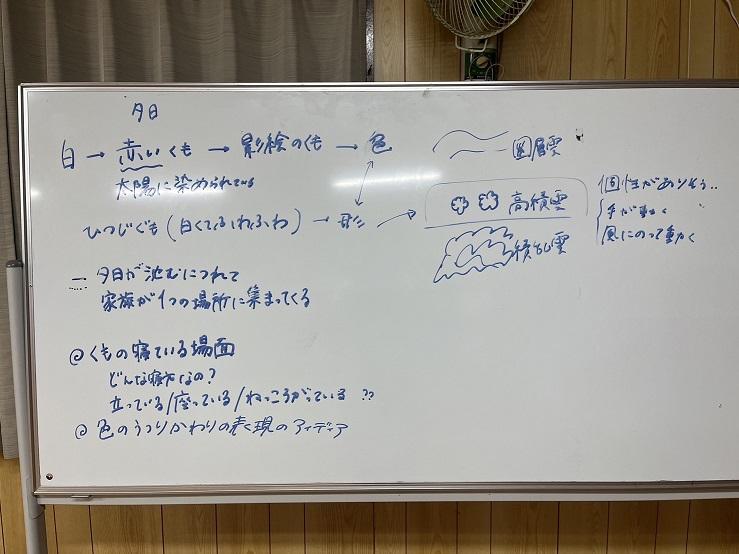 夕日
白 → 赤いくも → 影絵のくも → 色
太陽に染められている
層雲
ひつじぐも(白くてふわふわ) → 形 →
高積雲
積乱雲
個性がありそう..
手が動く
風にのって動く
夕日が沈むにつれて
家族が1つの場所に集まってくる
◎くもの寝ている場面
どんな寝方なの?
立っている/座っている/ねっころがっている ??
◎色のうつりかわりの表現のアイディア